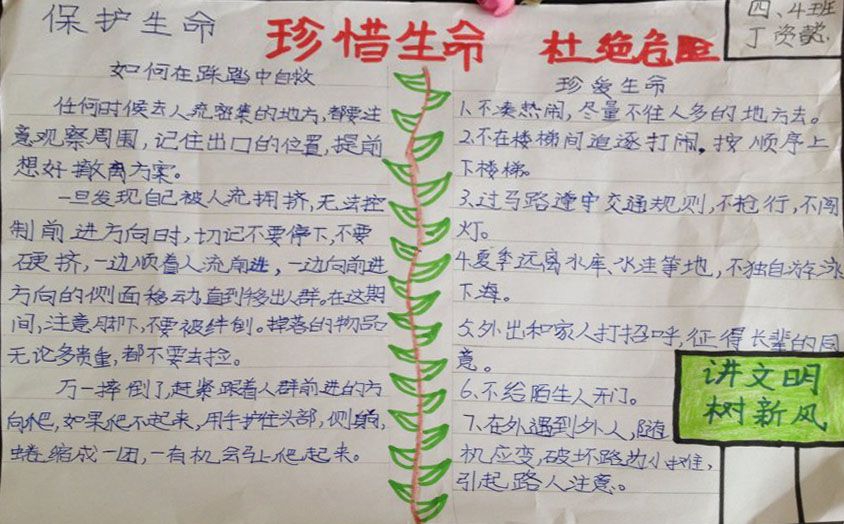 保护生命
珍惜生命 杜绝危险
四、4班
丁资懿
如何在踩踏中自救
任何时候去人流密集的地方,都要注
意观察周围,记住出口的位置,提前
想好撤离方案。
一旦发现自己被人流拥挤,无法控
制前进方向时,切记不要停下,不要
硬挤,一边顺着人流前进,一边向前进
方向的侧面移动直到移出人群,在这期
间,注意脚下,不要被绊倒。掉落的物品
无论多贵重,都不要去捡。
万一摔倒了,赶紧跟着人群前进的方
向爬,如果爬不起来,用手护住头部,侧躺,
蜷缩成一团,一有机会马上爬起来。
珍爱生命
1.不凑热闹,尽量不往人多的地方去。
2.不在楼梯间追逐打闹。按顺序上
下楼梯。
3.过马路遵守交通规则,不抢行,不闯
灯。
4.夏季远离水库、水洼等地,不独自游泳
下海。
5.外出和家人打招呼,征得长辈的同
意。
6.不给陌生人开门。
7.在外遇到外人,随
机应变,破坏路边小摊,
引起路人注意。
讲文明
树新风